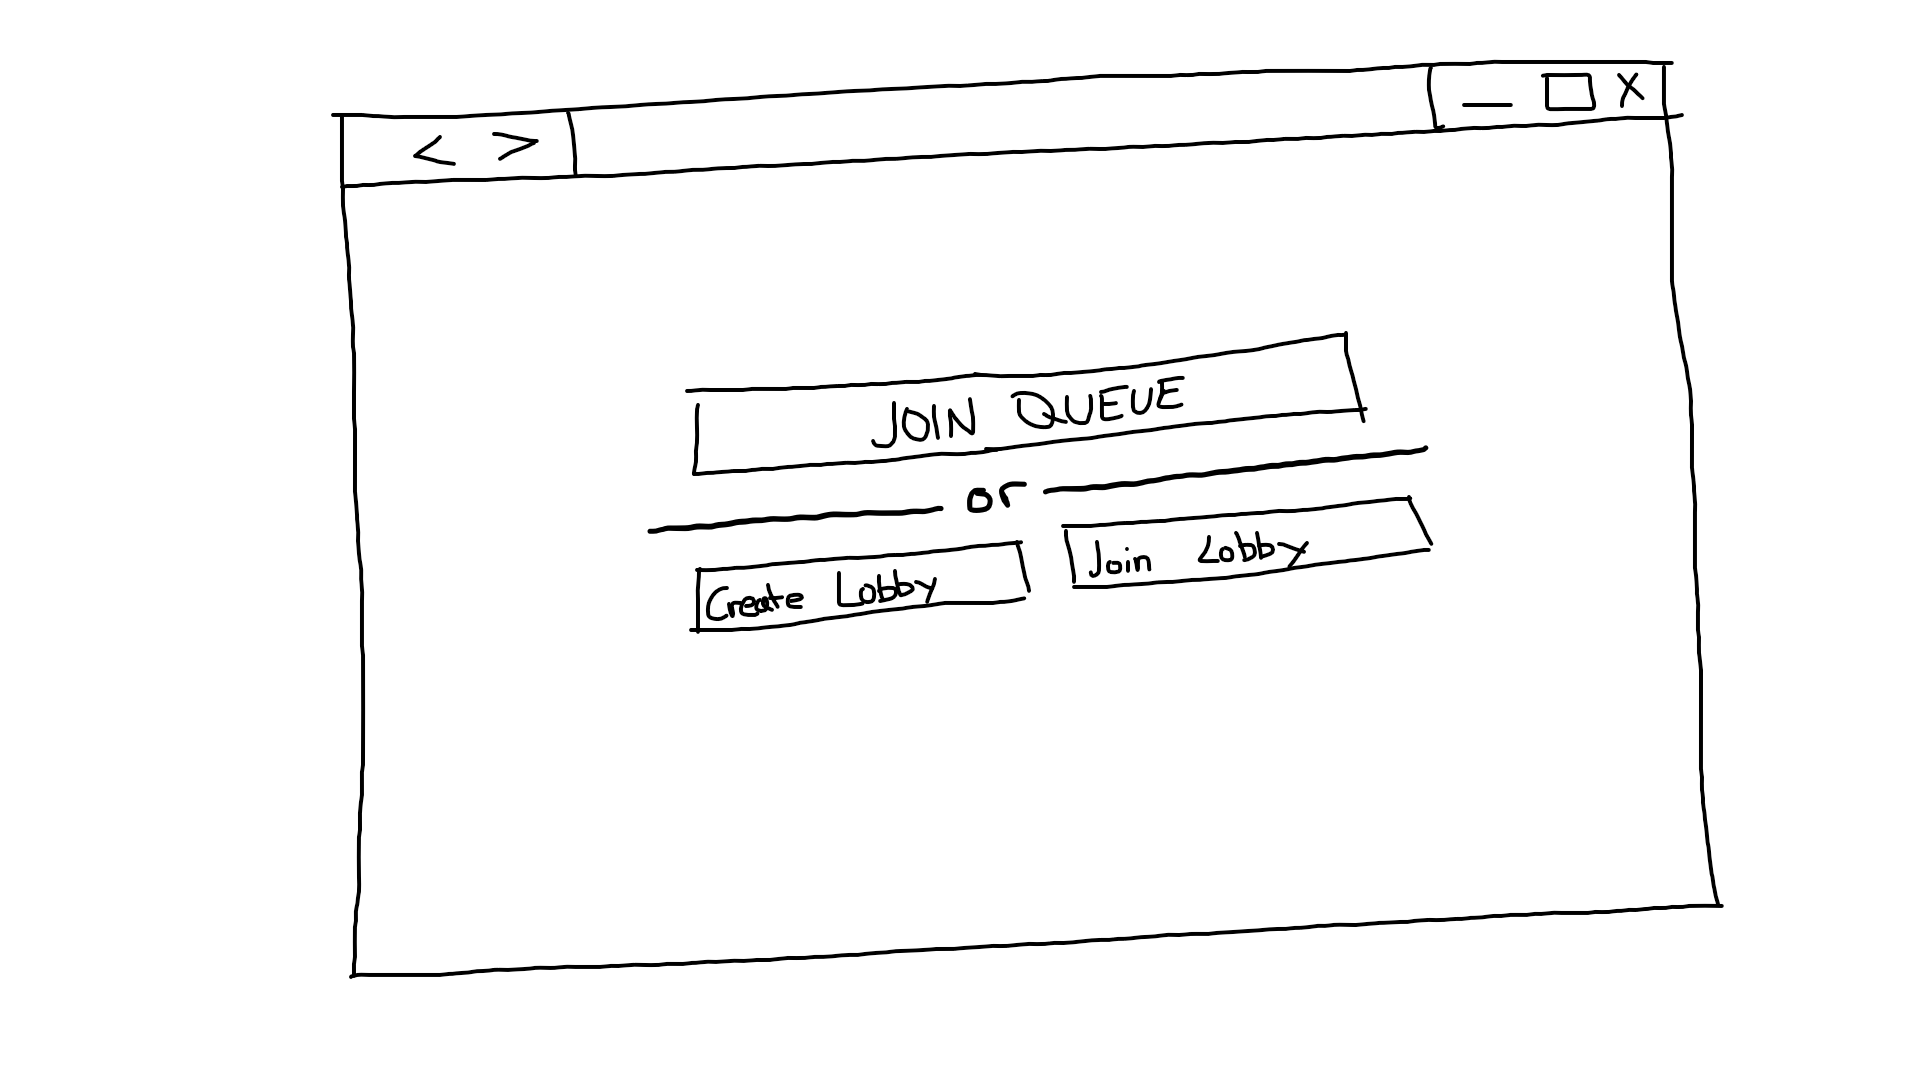 < >
X
JOIN QUEUE
or
Create Lobby
Join Lobby